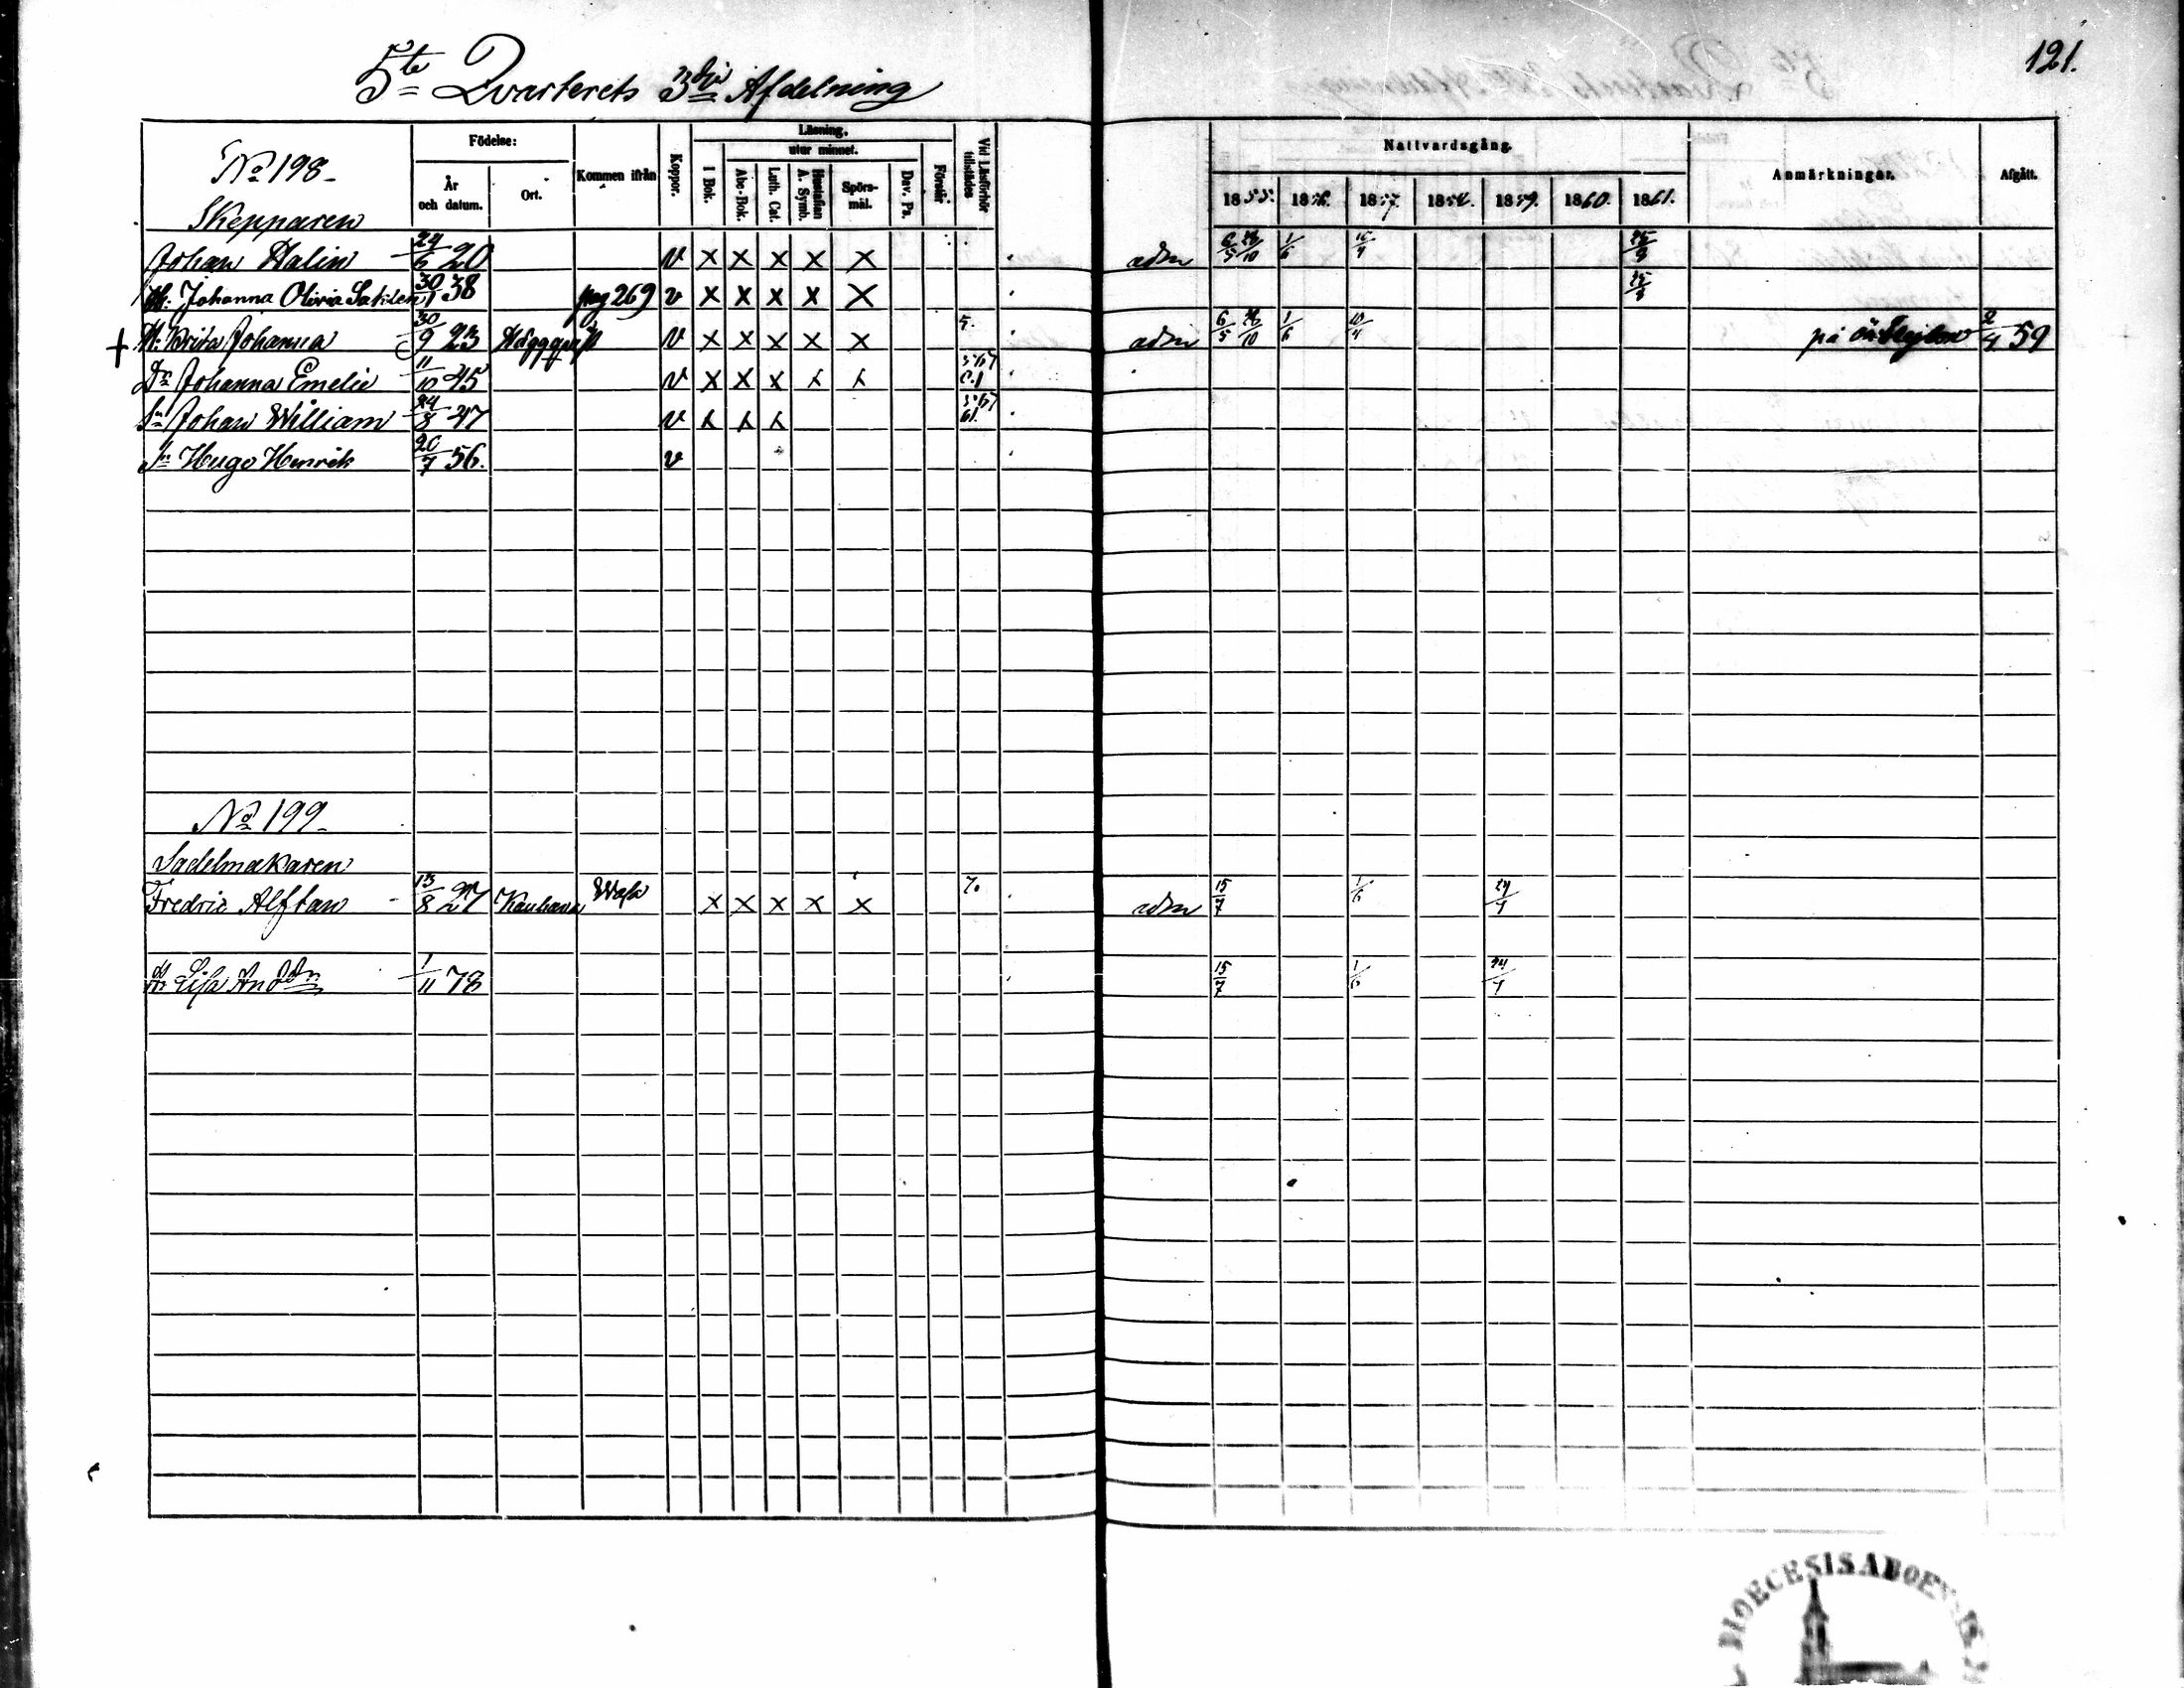 5te Qvarterets 3dje Afdelning
121.
Födelse:
År och datum.
Ort.
Kommen ifrån
Koppor.
Läsning.
utur minnet.
I Bok.
Abc-Bok.
Luth. Cat.
Hustaflan A. Symb.
Spörs-mål.
Dav. Ps.
Förstår
Vid Läsförhör tillstädes
Nattvardsgång.
1855. 1856. 1857. 1858. 1859. 1860. 1861.
Anmärkningar.
Afgått.
No 198
Skepparen
Johan Malin 24/6 20 v x x x x x adm 6/5 28/10 1/6 25/9
H: Johanna Olivia 30/1 38 pag 269 v x x x x x
+ H: Brita Johanna 30/9 23 v x x x x x 5. adm 6/5 28/10 1/6 10/4 på 2/4 59
Dr Johanna Emelie 11/10 45 v x x x x x
Sn Johan William 24/8 47 v x x x
Sn Hugo Henrik 20/7 56. v
No 199
Sadelmakaren
Fredric Alftan 13/8 27 Kauhava Wasa x x x x x 7. adm 15/7 1/6 24/7
Lisa 1/11 78 15/7 1/6 24/7
DIOECESIS ABOENSIS